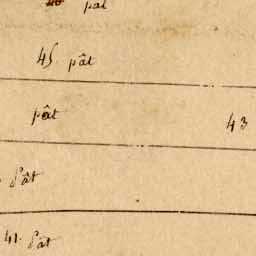 pât
45. pât
pât 43
pât
41. pât